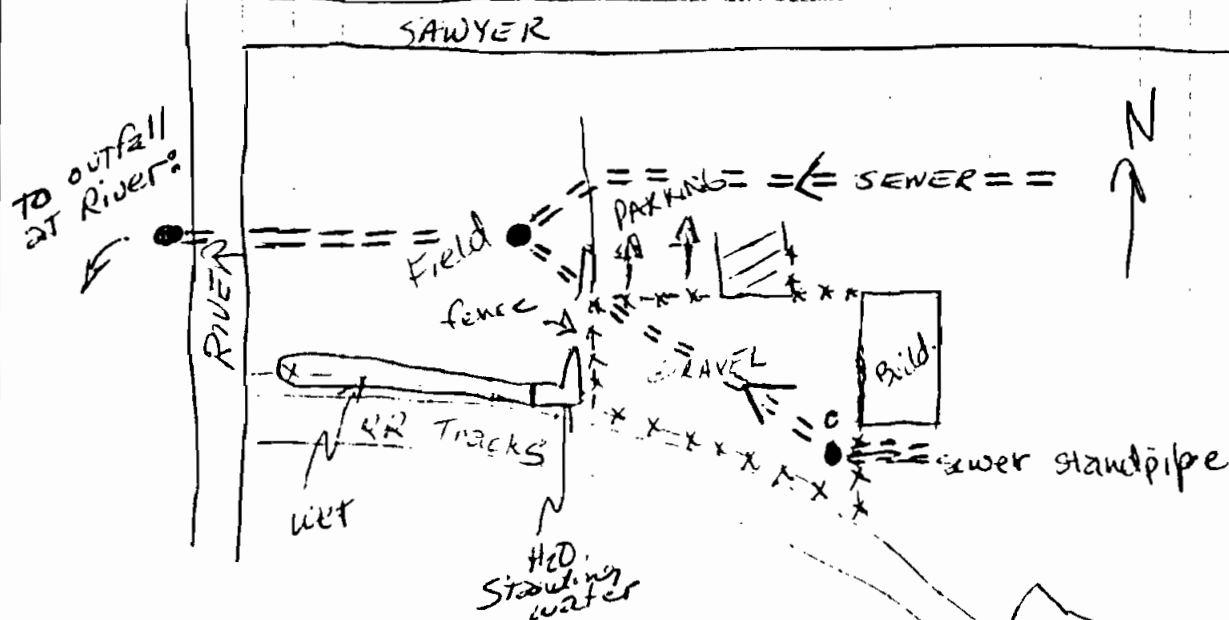 SAWYER
N
TO outfall
at River:
SEWER
PARKING
Field
RIVER
fence
GRAVEL
Build.
C
RR Tracks
sewer standpipe
WET
H2O
Standing
water